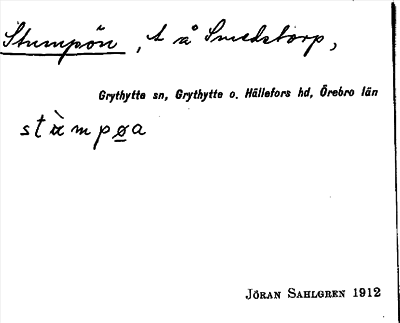 Stumpön, t å Smedstorp,
Grythytte sn, Grythytte o. Hällefors hd, Örebro län
JÖRAN SAHLGREN 1912